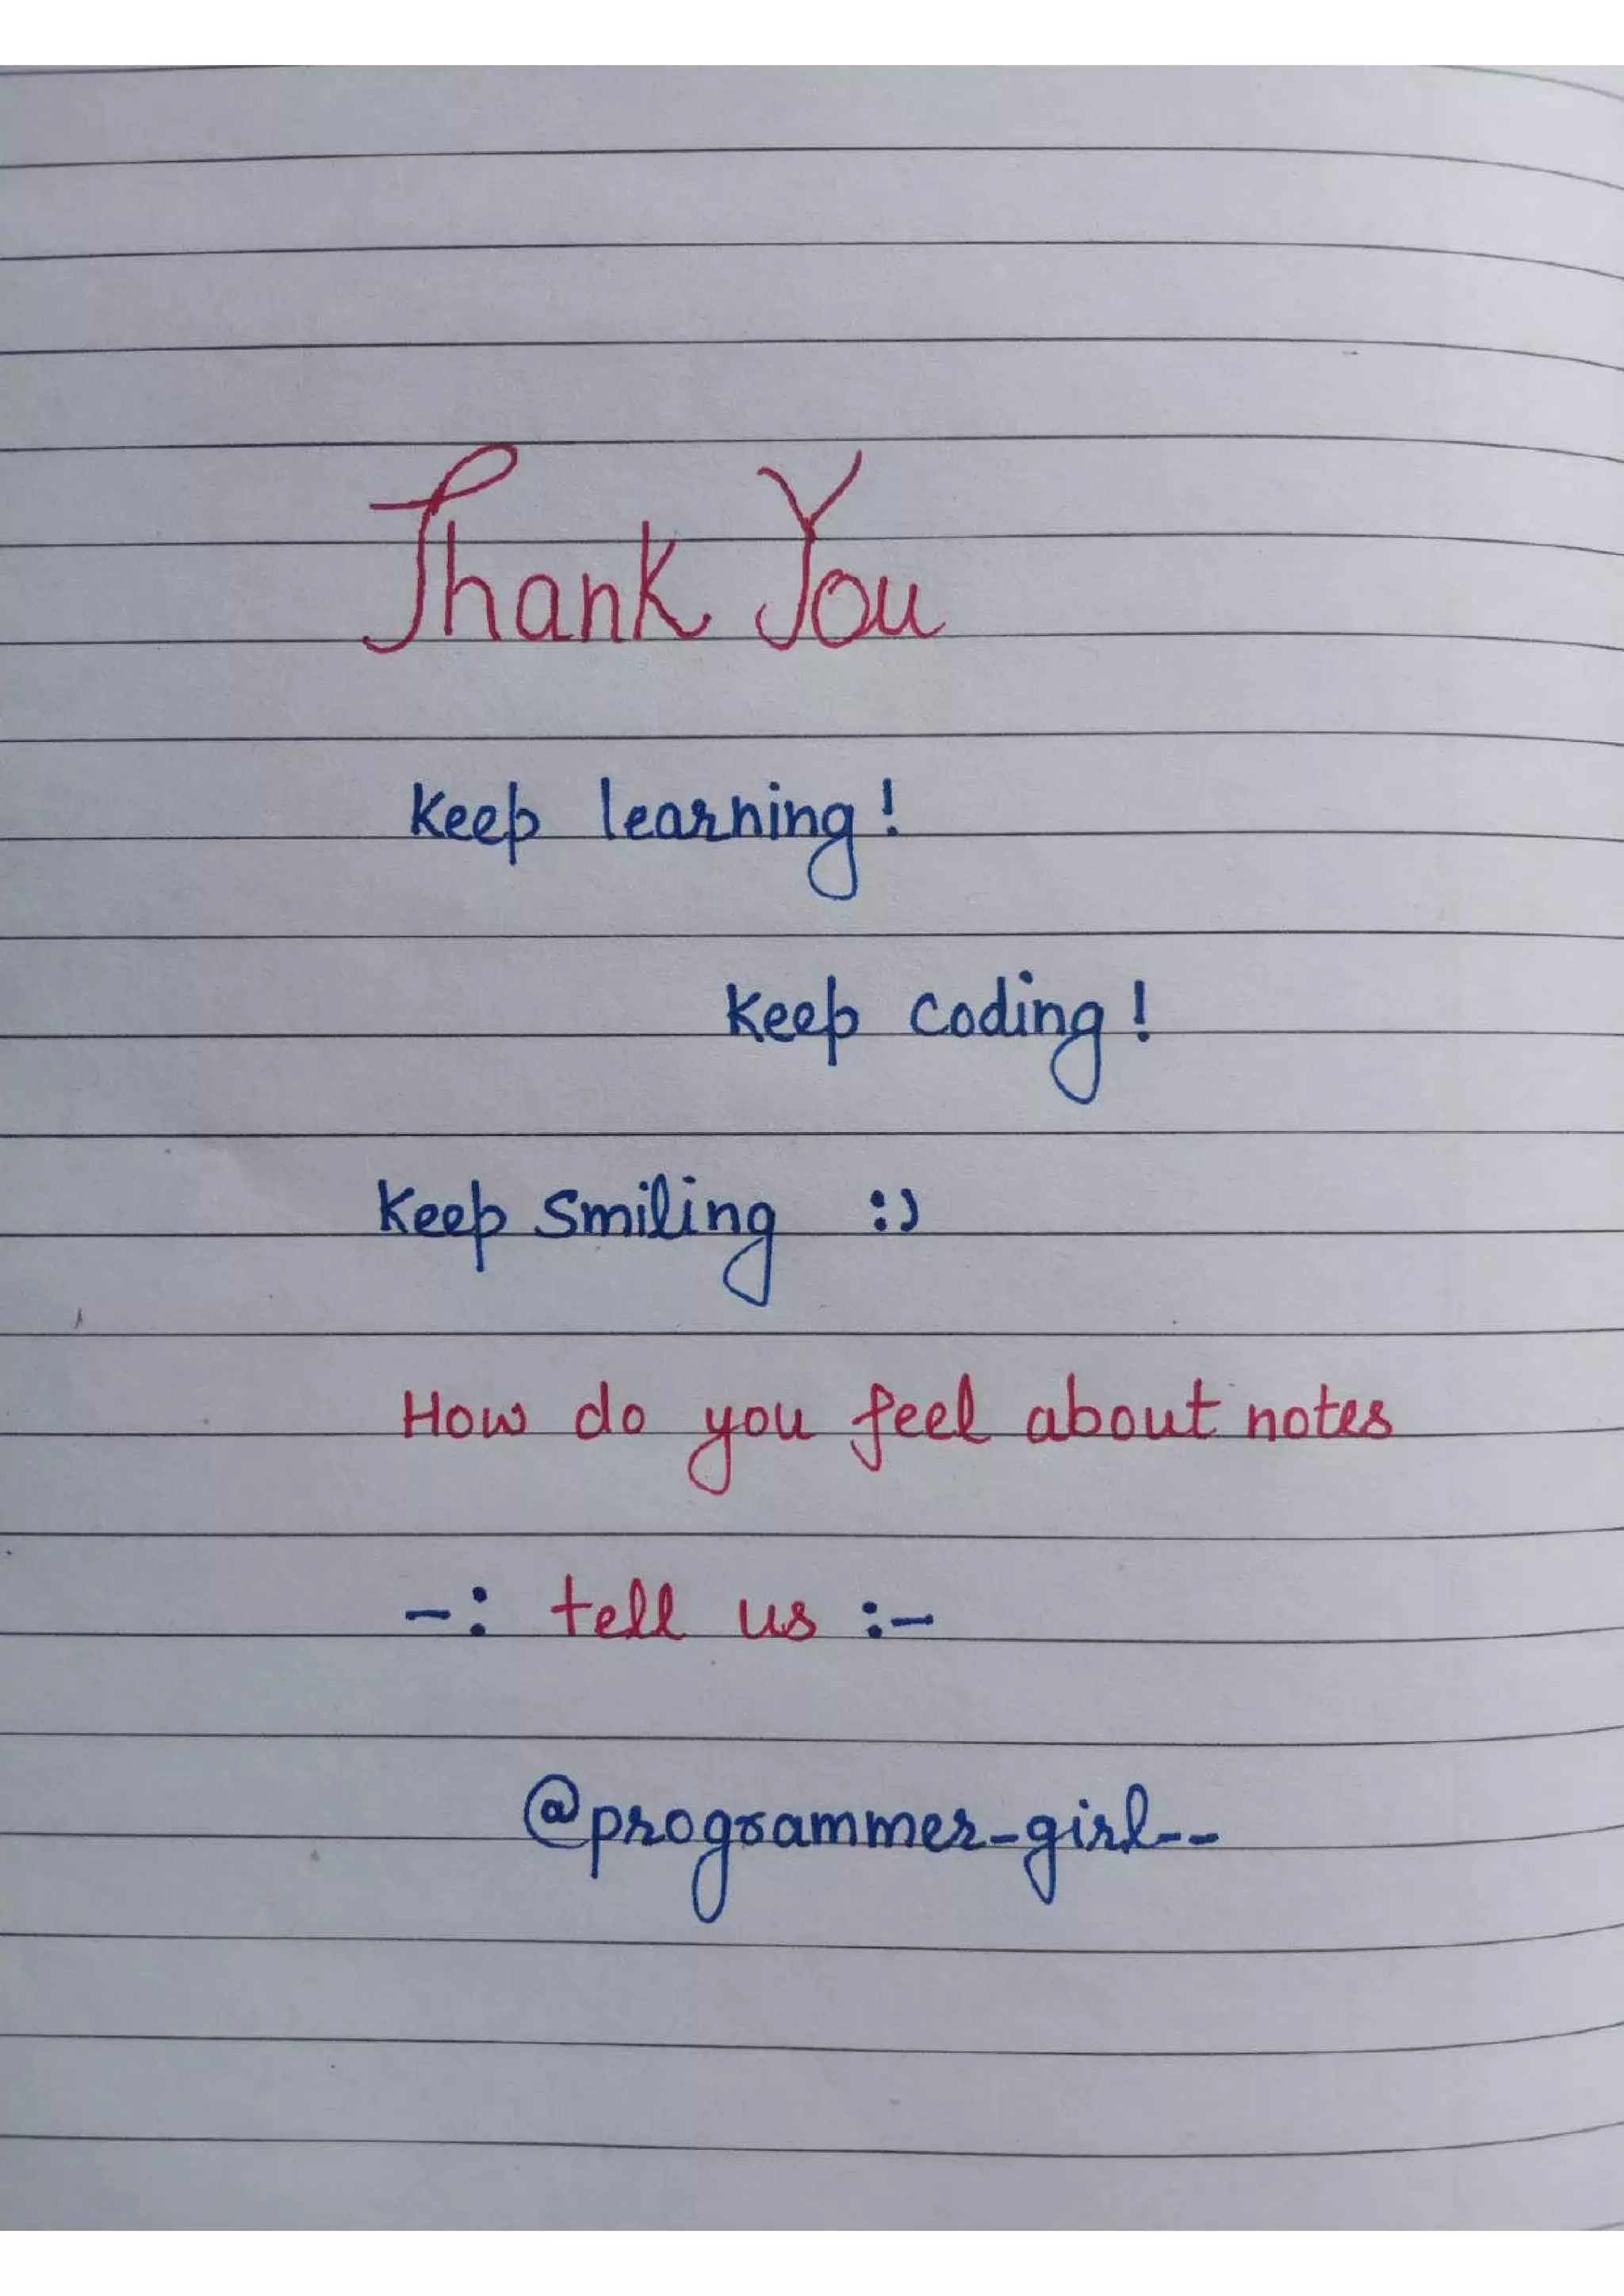 Thank You
Keep learning!
Keep coding!
Keep smiling :)
How do you feel about notes
-: tell us :-
@programmer_girl__